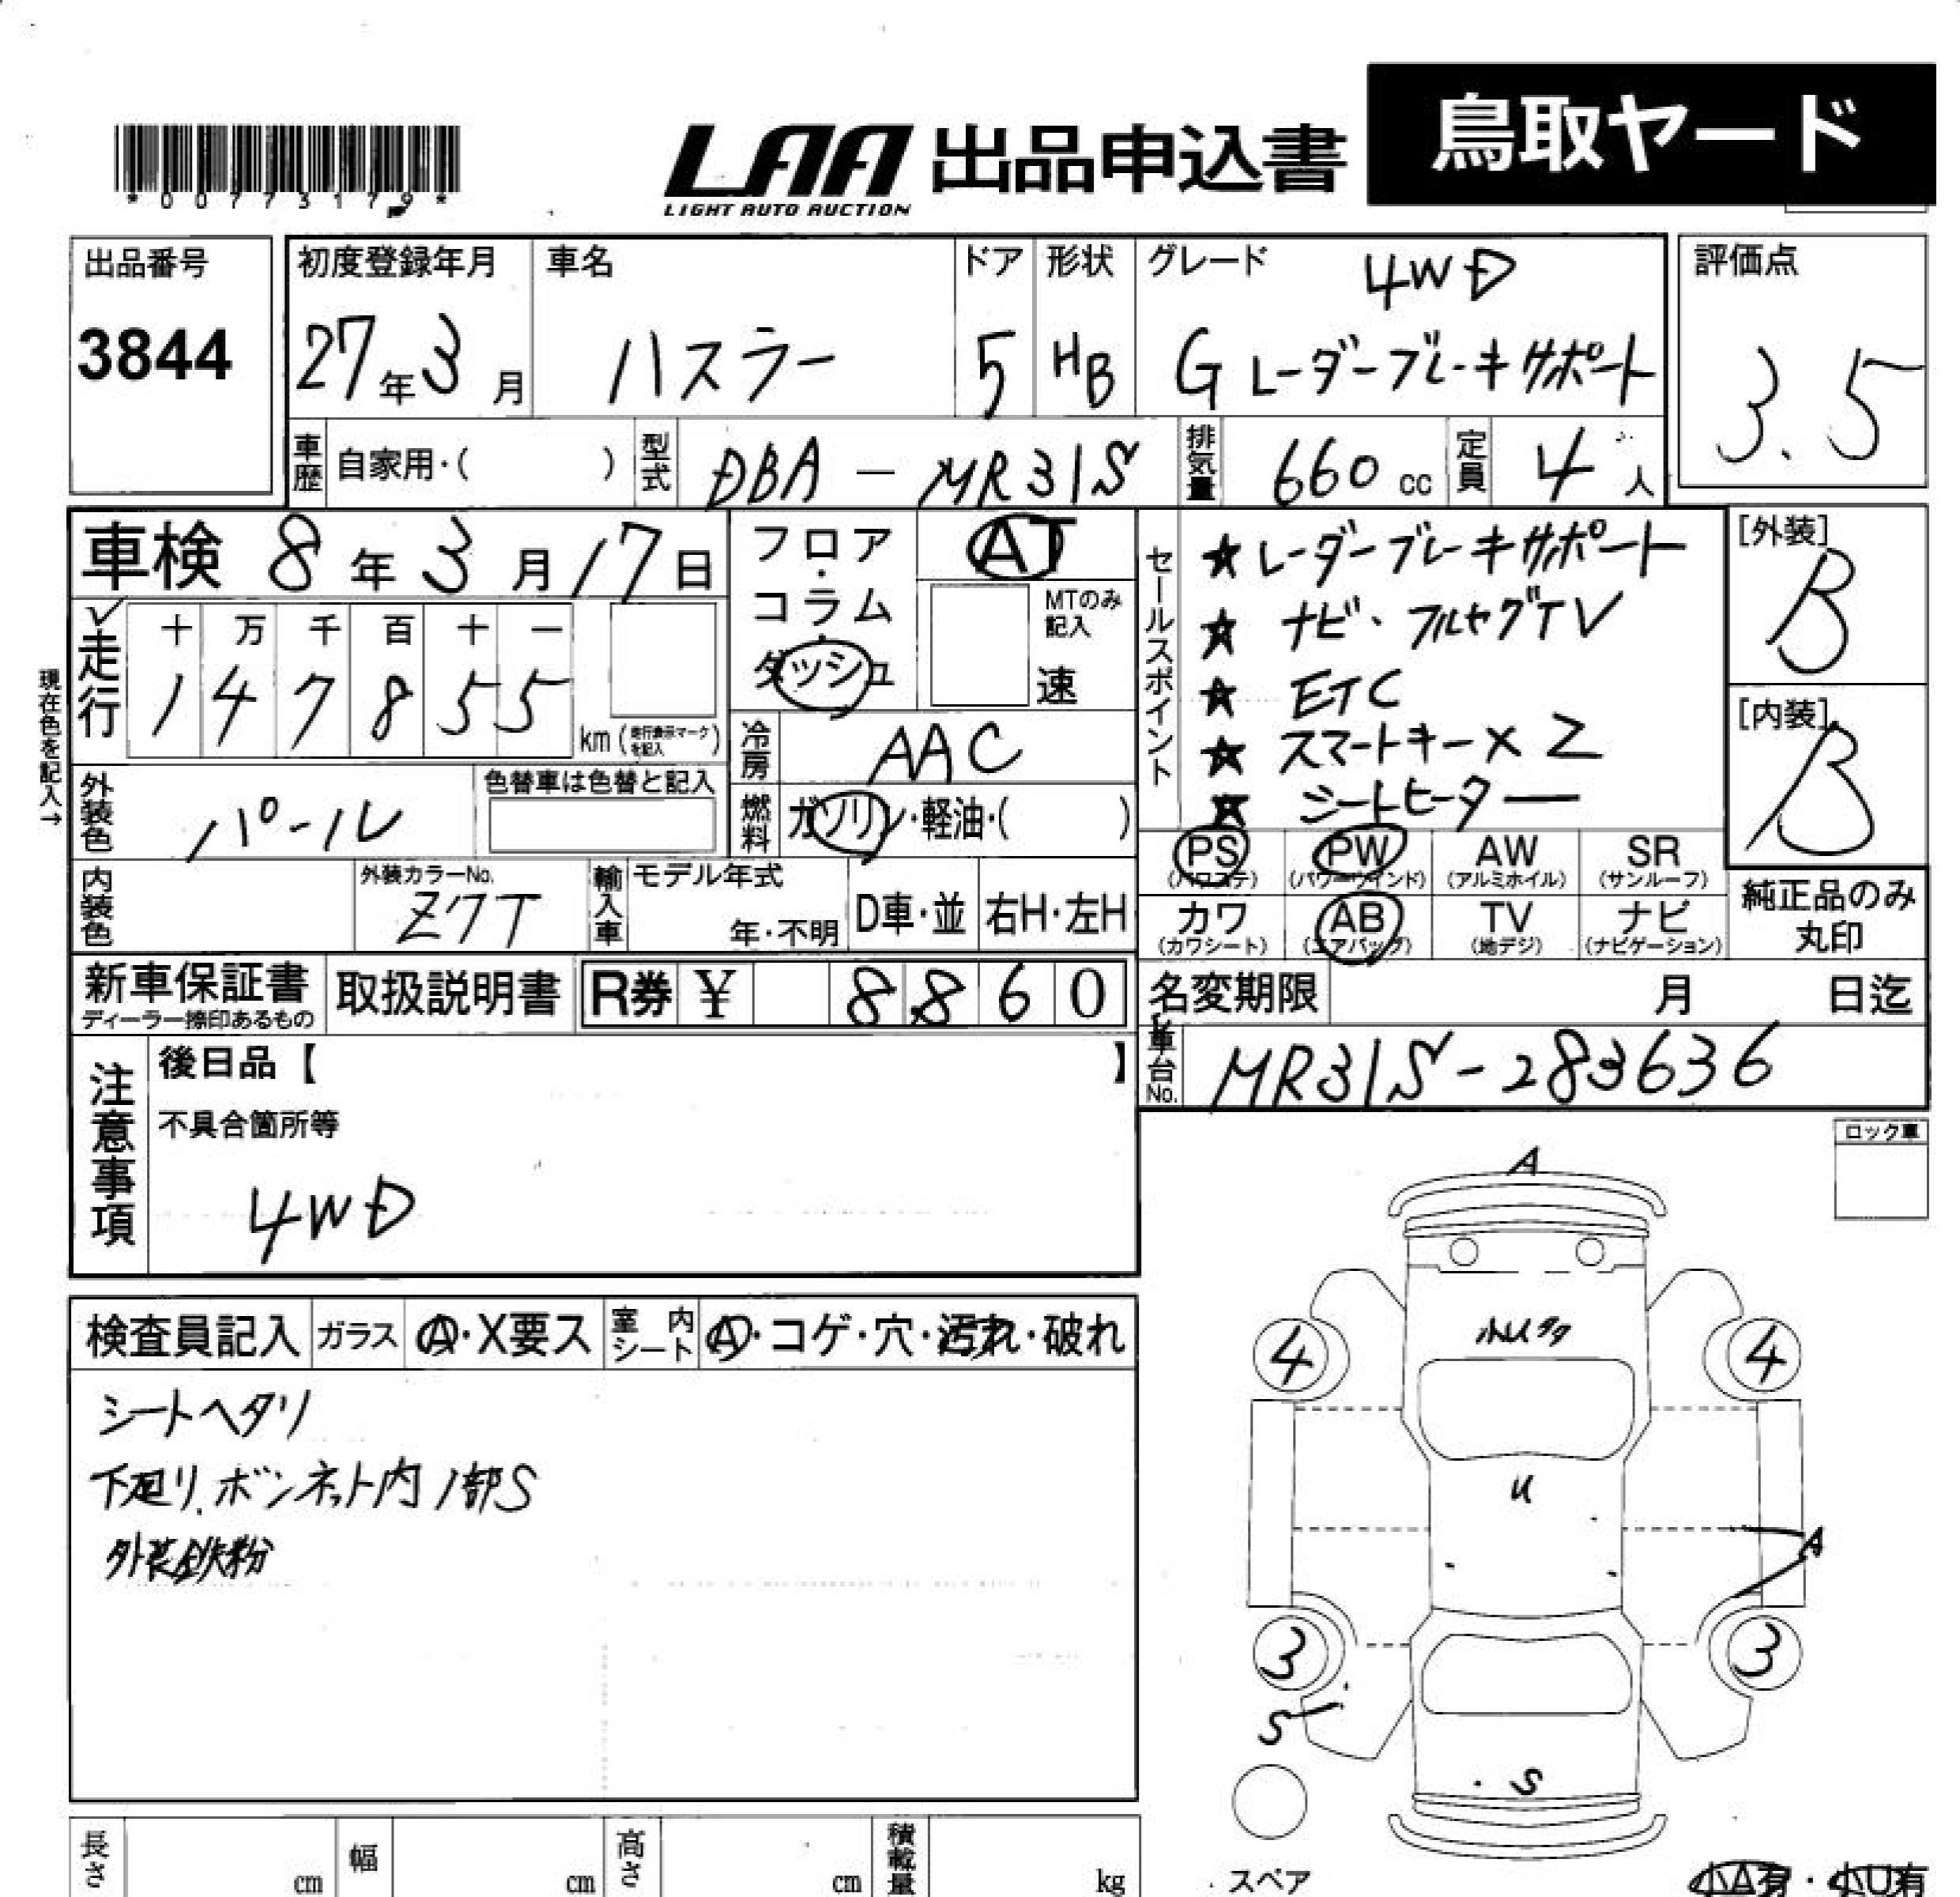 鳥取ヤード
LAA 出品申込書
LIGHT AUTO AUCTION
*00773179*
出品番号
3844
初度登録年月
27年3月
車名
ハスラー
ドア
5
形状
HB
グレード
4WD
G レーダーブレーキサポート
評価点
3.5
車歴
自家用・( )
型式
DBA-MR31S
排気量
660cc
定員
4人
車検 8年3月17日
フロア・コラム・ダッシュ
AT
MTのみ記入
速
セールスポイント
★レーダーブレーキサポート
★ナビ・フルセグTV
★ETC
★スマートキー×2
★シートヒーター
[外装]
B
[内装]
B
現在色を記入→
✓走行
十 万 千 百 十 一
1 4 7 8 5 5
km(走行表示マークを記入)
冷房
AAC
外装色
パール
色替車は色替と記入
燃料
ガソリン・軽油・( )
PS (パワステ)
PW (パワーウインド)
AW (アルミホイル)
SR (サンルーフ)
カワ (カワシート)
AB (エアバッグ)
TV (地デジ)
ナビ (ナビゲーション)
純正品のみ丸印
内装色
外装カラーNo.
Z7T
輸入車
モデル年式
年・不明
D車・並
右H・左H
新車保証書
ディーラー捺印あるもの
取扱説明書
R券 ¥ 8860
名変期限 月 日迄
車台No.
MR31S-283636
注意事項
後日品【 】
不具合箇所等
4WD
ロック車
検査員記入
ガラス
A・X要ス
室内シート
A・コゲ・穴・汚れ・破れ
シートヘタリ
下廻り.ボンネット内1部S
外装鉄粉
A
小Uタタ
4
4
U
A
3
3
S
S
スペア
長さ cm
幅 cm
高さ cm
積載量 kg
小A有・小U有